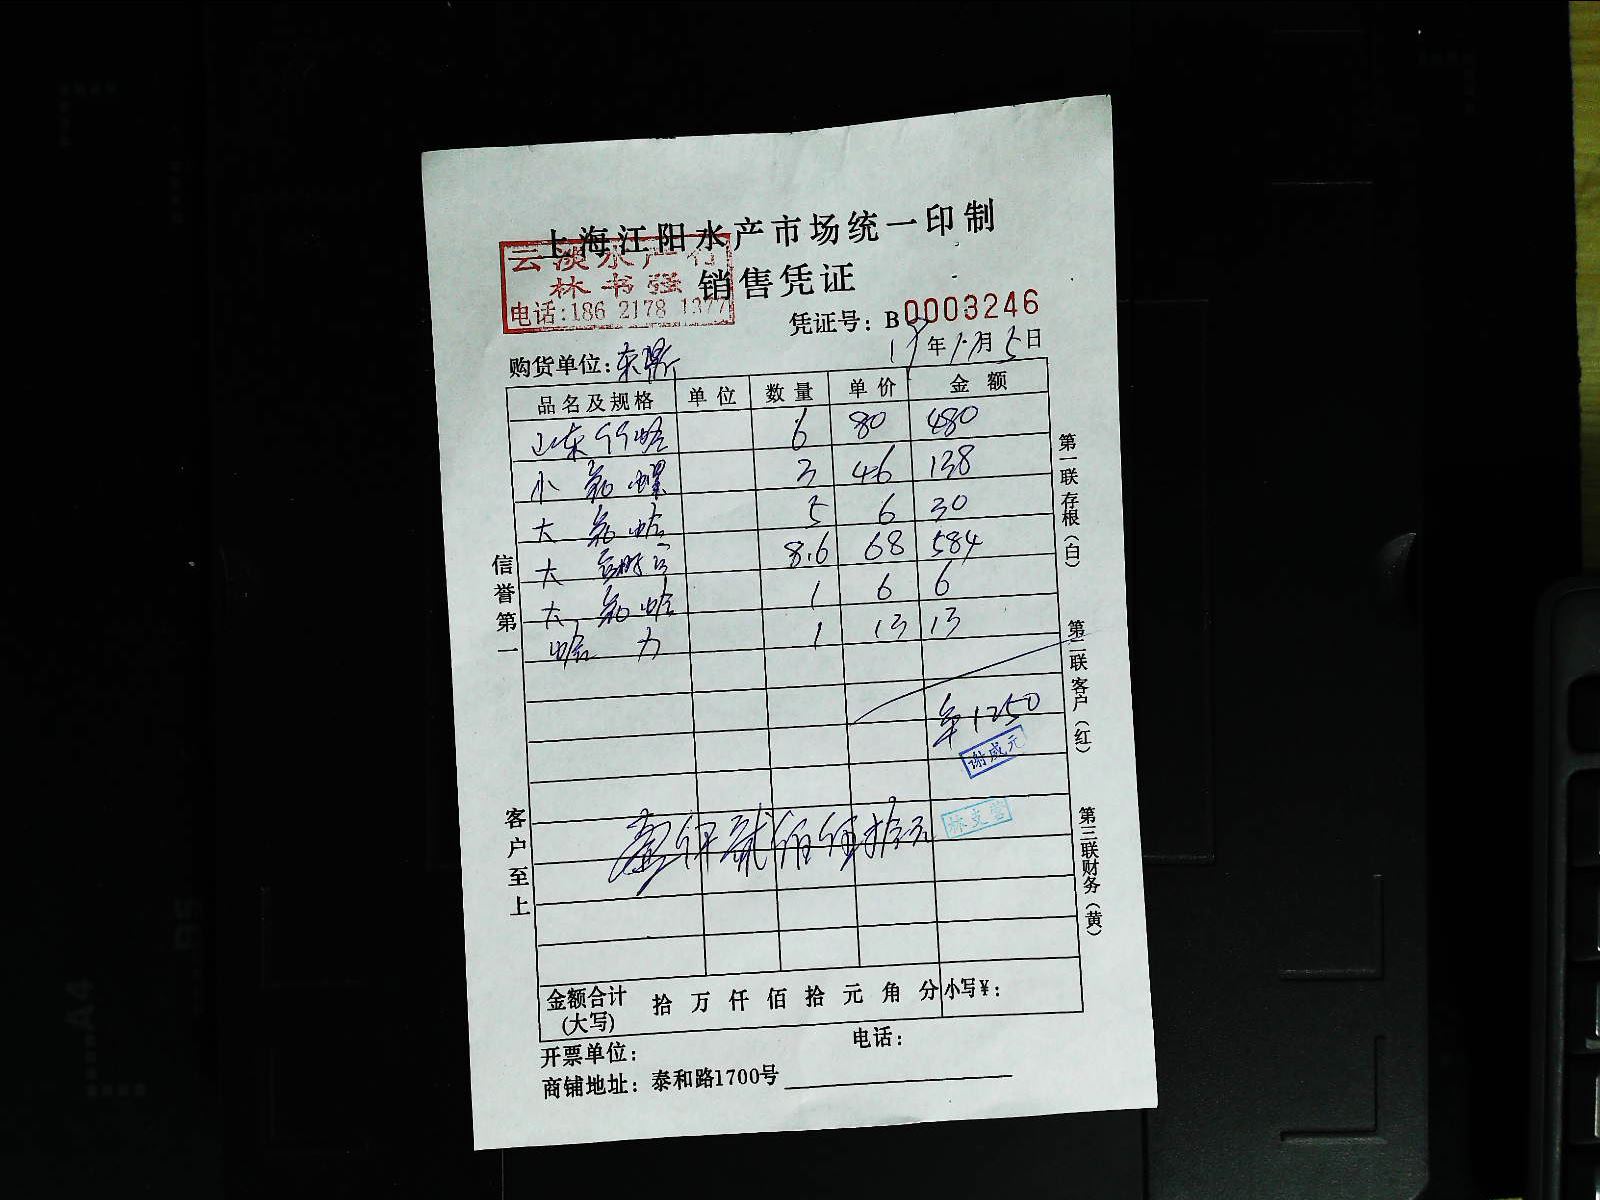 上海江阳水产市场统一印制
云淡水产行
林书强
电话:186 2178 1377
销售凭证
凭证号: B0003246
购货单位:
年 月 5 日
品名及规格 单位 数量 单价 金额
山东 6 80 480
小 螺 3 46 138
大 5 6 30
大 8.6 68 584
大 1 6 6
1 13 13
1250
谢成元
林支营
壹仟贰佰伍拾元
信誉第一
客户至上
第一联存根(白)
第二联客户(红)
第三联财务(黄)
金额合计(大写) 拾 万 仟 佰 拾 元 角 分 小写¥:
开票单位: 电话:
商铺地址: 泰和路1700号